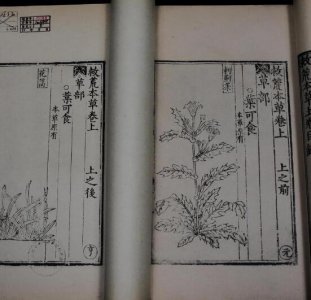 救荒本草卷上
上之前
草部
葉可食
本草原有
刺薊菜
元
救荒本草卷上
上之後
草部
葉可食
本草原有
亨